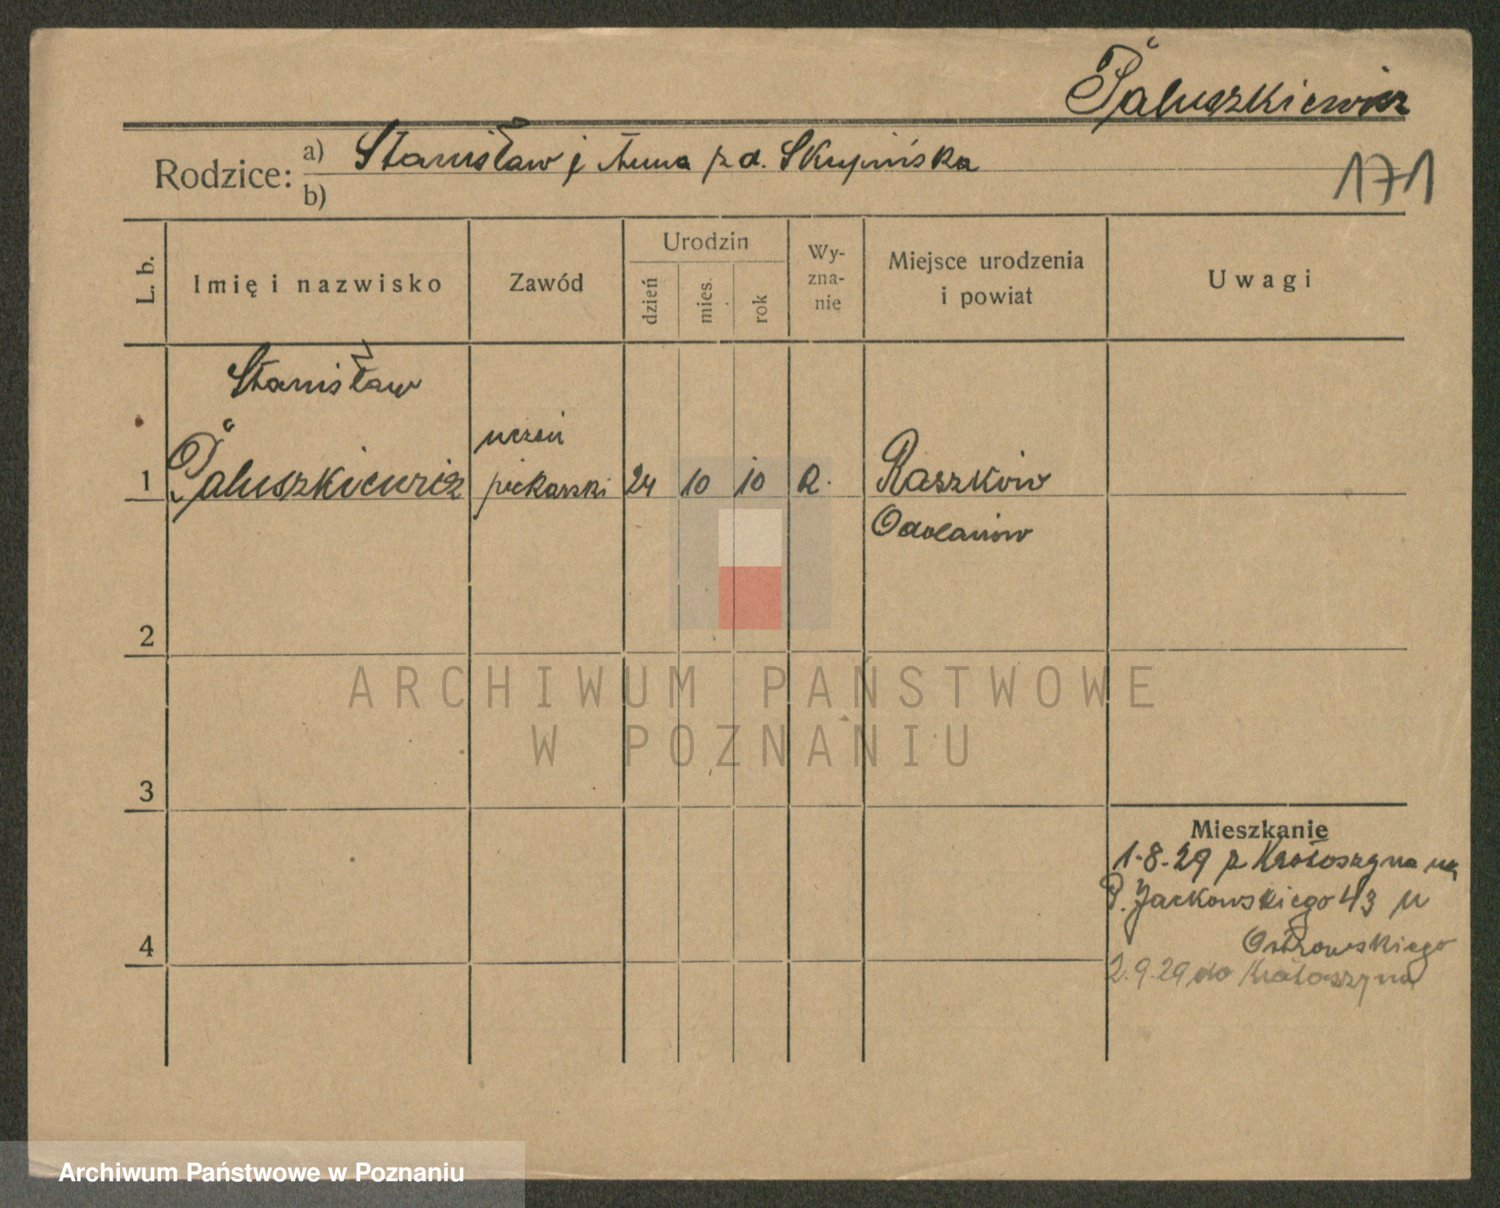 Paluszkiewicz
Rodzice: a) Stanisław i Anna z d. Skupińska
b)
171
L. b.
Imię i nazwisko
Zawód
Urodzin
dzień
mies.
rok
Wy-
zna-
nie
Miejsce urodzenia
i powiat
Uwagi
Stanisław
1 Paluszkiewicz
uczeń
piekarski
24 10 10 R.
Raszków
Odolanów
2
3
4
Mieszkanie
1.8.29 z Krotoszyna na
P. Jackowskiego 43 u
Ostrowskiego
2.9.29 do Krotoszyna
ARCHIWUM PAŃSTWOWE
W POZNANIU
Archiwum Państwowe w Poznaniu